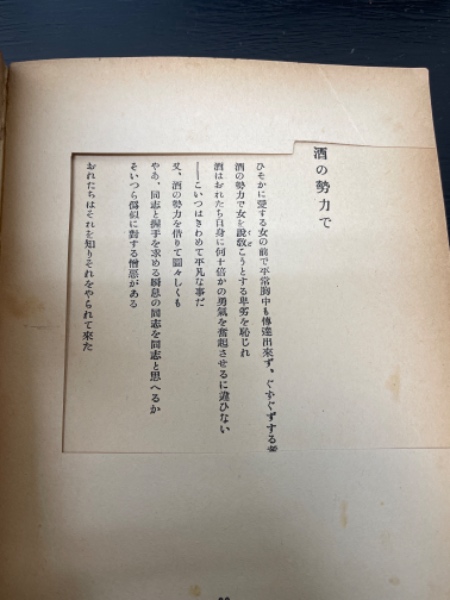 酒の勢力で
ひそかに愛する女の前で平常胸中も傳達出來ず、ぐずぐずする
酒の勢力で女を說敎こうとする卑劣を恥じれ
酒はおれたち自身に何十倍かの勇氣を奮起させるに違ひない
――こいつはきわめて平凡な事だ
又、酒の勢力を借りて圖々しくも
やあ、同志と握手を求める瞬息の同志を同志と思へるか
そいつら僞似に對する憎惡がある
おれたちはそれを知りそれをやられて來た